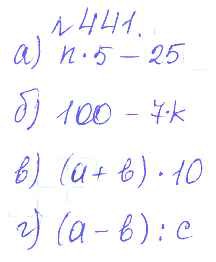 №441.
а) n·5 – 25
б) 100 – 7·k
в) (а + в) · 10
г) (а – в) : с